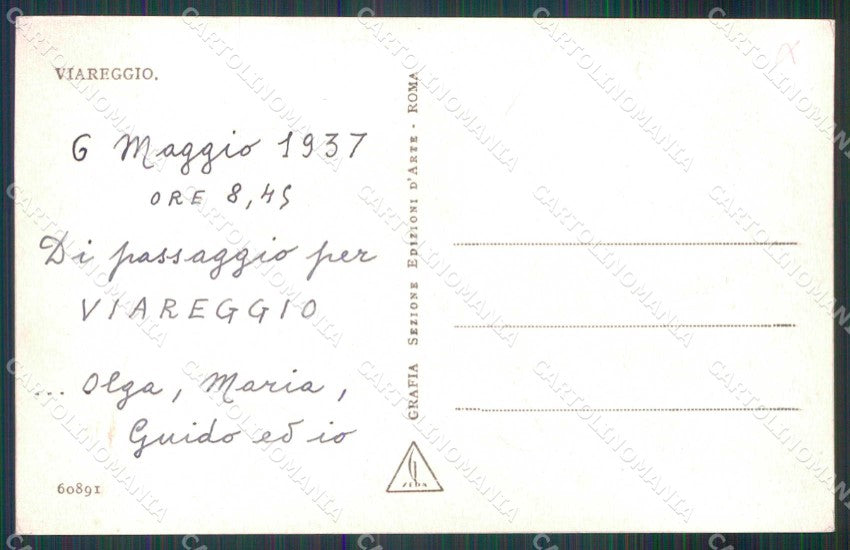 VIAREGGIO.
6 Maggio 1937
ORE 8,45
Di passaggio per
VIAREGGIO
... Olga, Maria,
Guido ed io
60891
GRAFIA SEZIONE EDIZIONI D'ARTE - ROMA
CARTOLINOMANIA